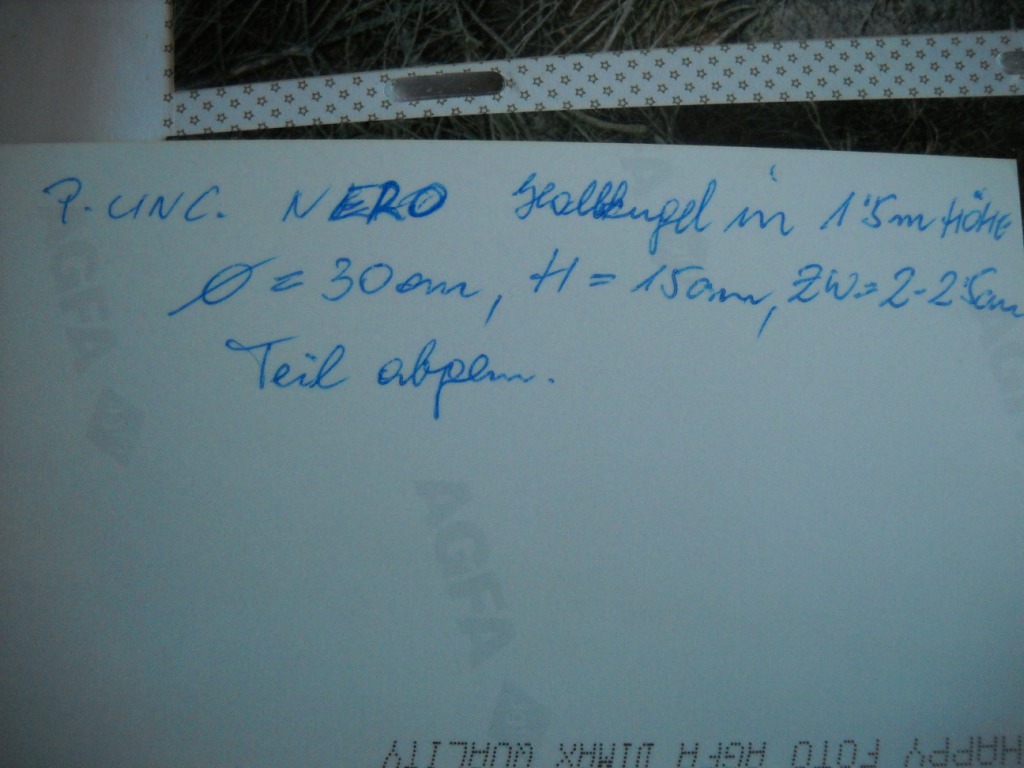 P. UNC. NERO Halbkugel in 1'5m HÖHE
Ø = 30cm, H = 15cm, ZW = 2-2'5cm
Teil abpem.
AGFA
AGFA
HAPPY FOTO AGFA DIMAX QUALITY